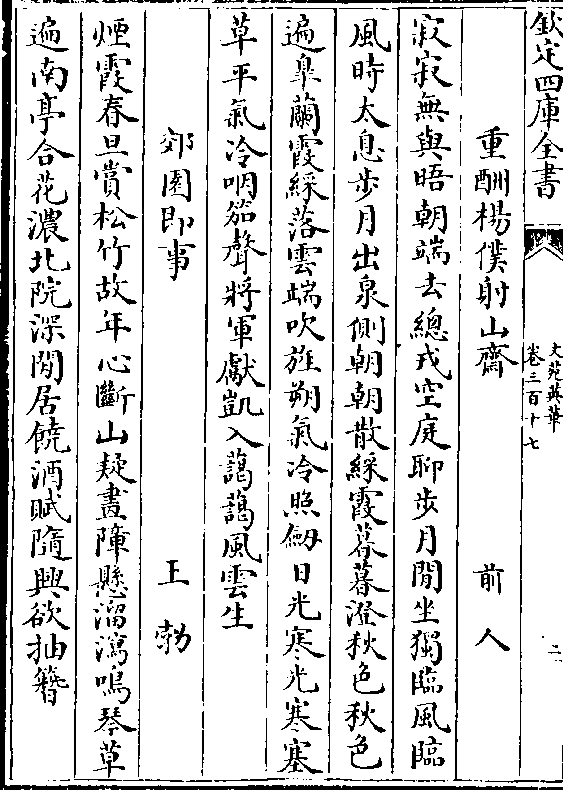 欽定四庫全書
文苑英華
卷三百十七
二
重酬楊僕射山齋 前人
寂寂無與晤朝端去總戎空庭聊步月閒坐獨臨風臨
風時太息步月出泉側朝朝散綵霞暮暮澄秋色秋色
遍臯蘭霞綵落雲端吹旌朔氣冷照劔日光寒光寒塞
草平氣冷咽笳聲將軍獻凱入藹藹風雲生
郊園即事 王勃
煙霞春旦賞松竹故年心斷山疑畫障懸溜瀉鳴琴草
遍南亭合花濃北院深閒居饒酒賦隨興欲抽簪